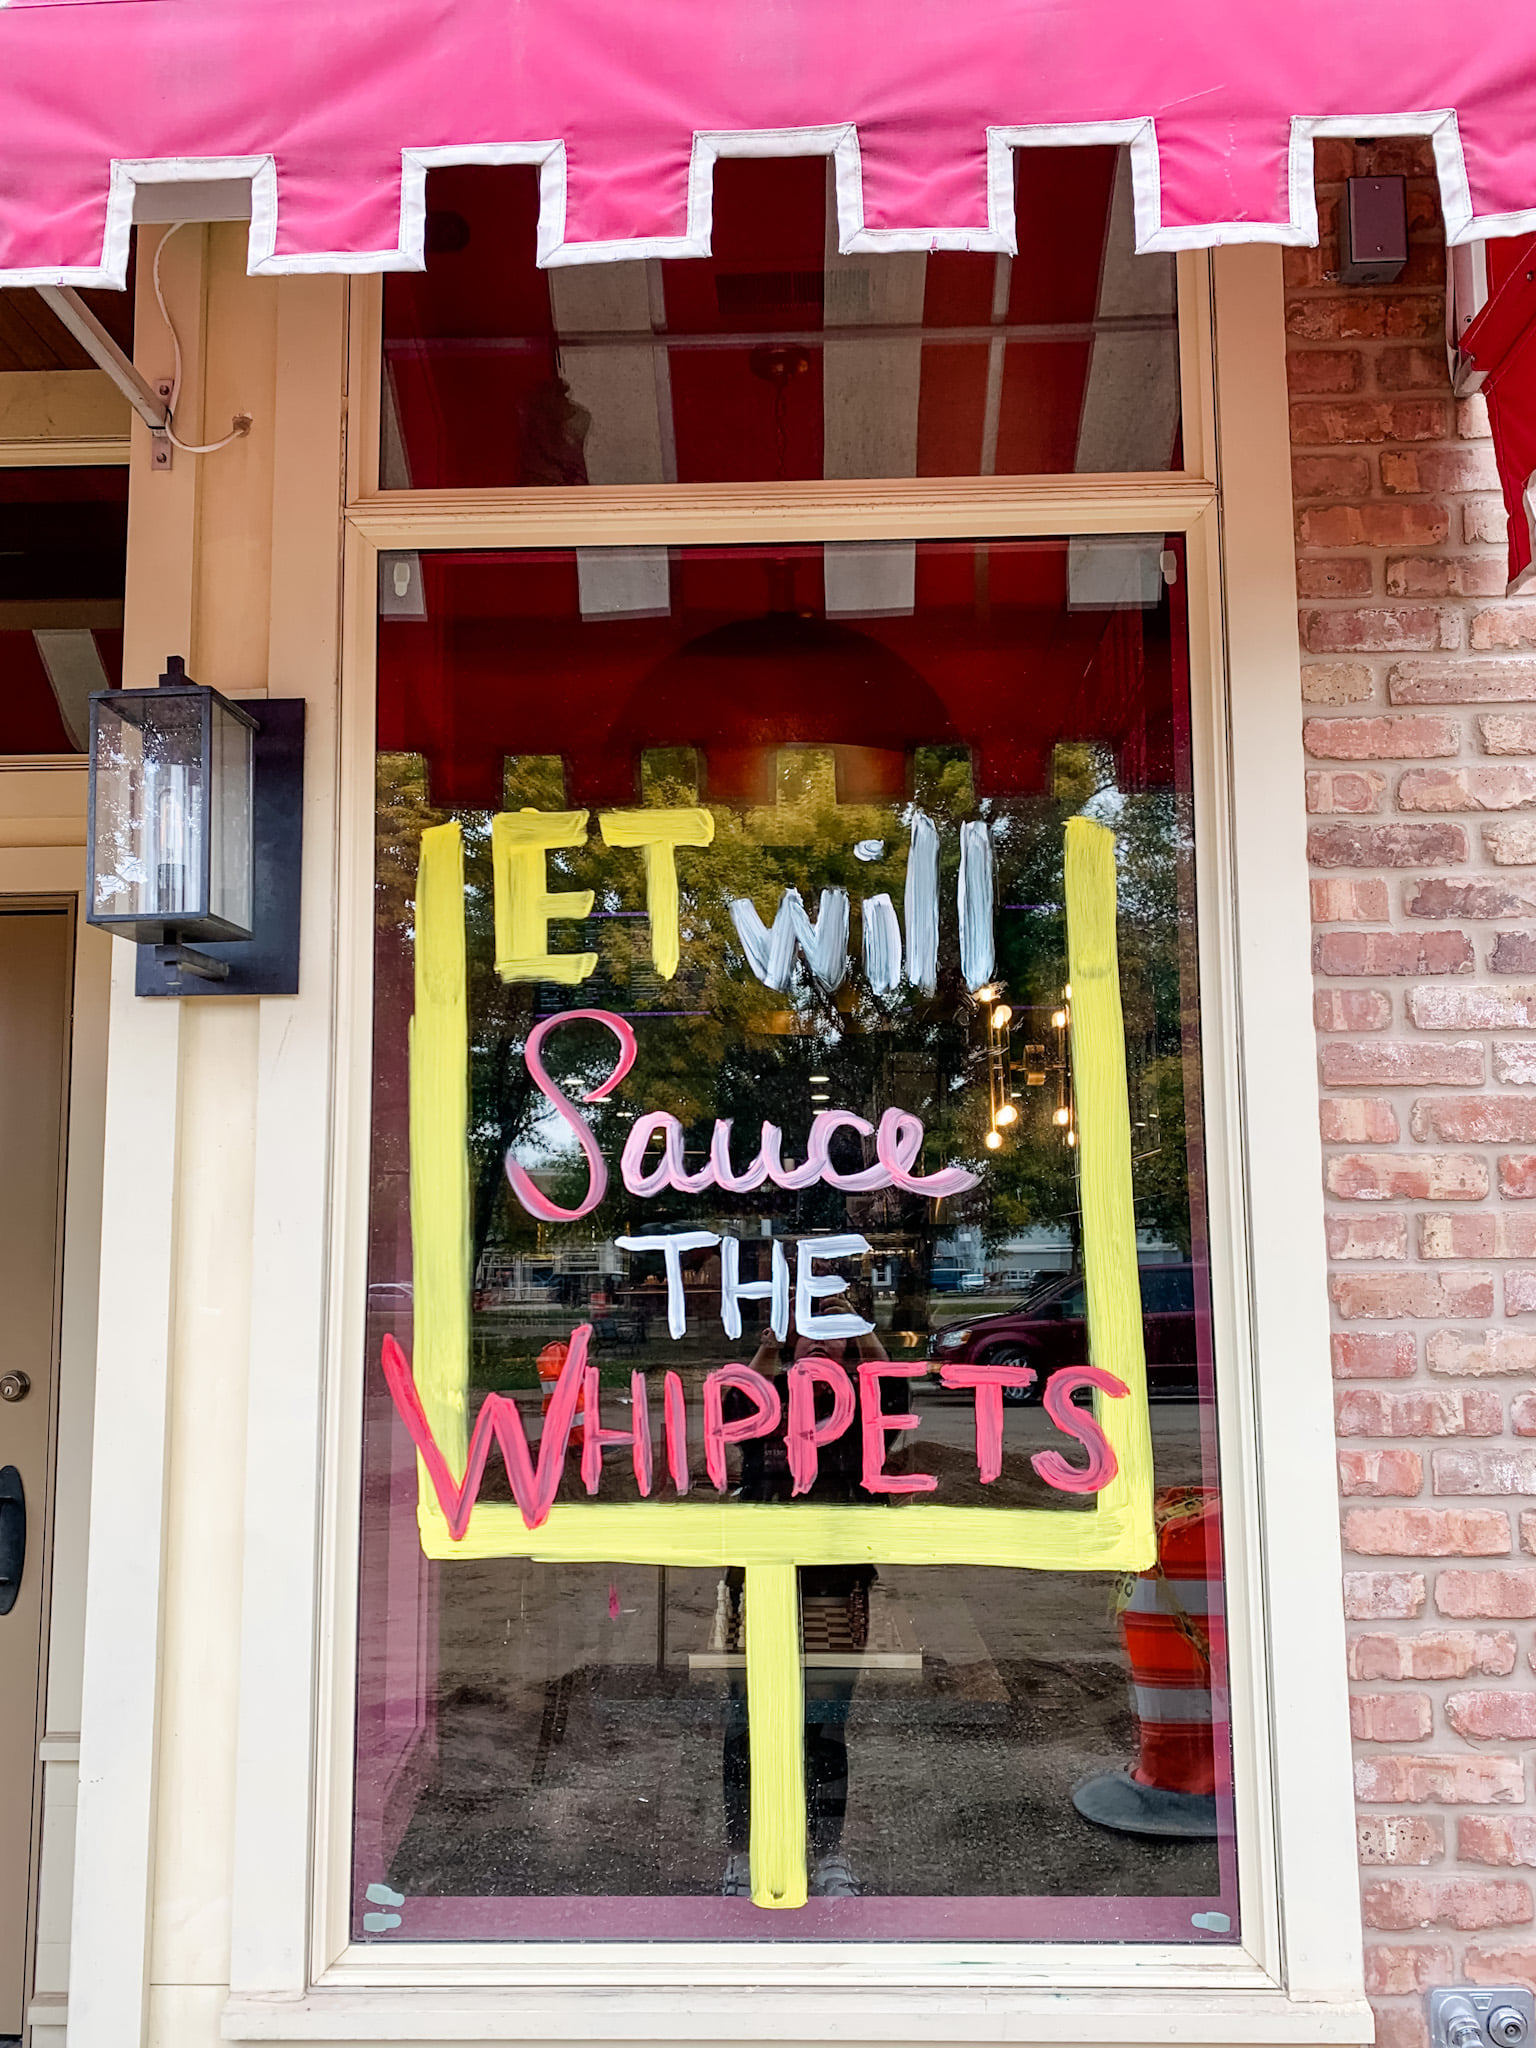 ET will
Sauce
THE
WHIPPETS